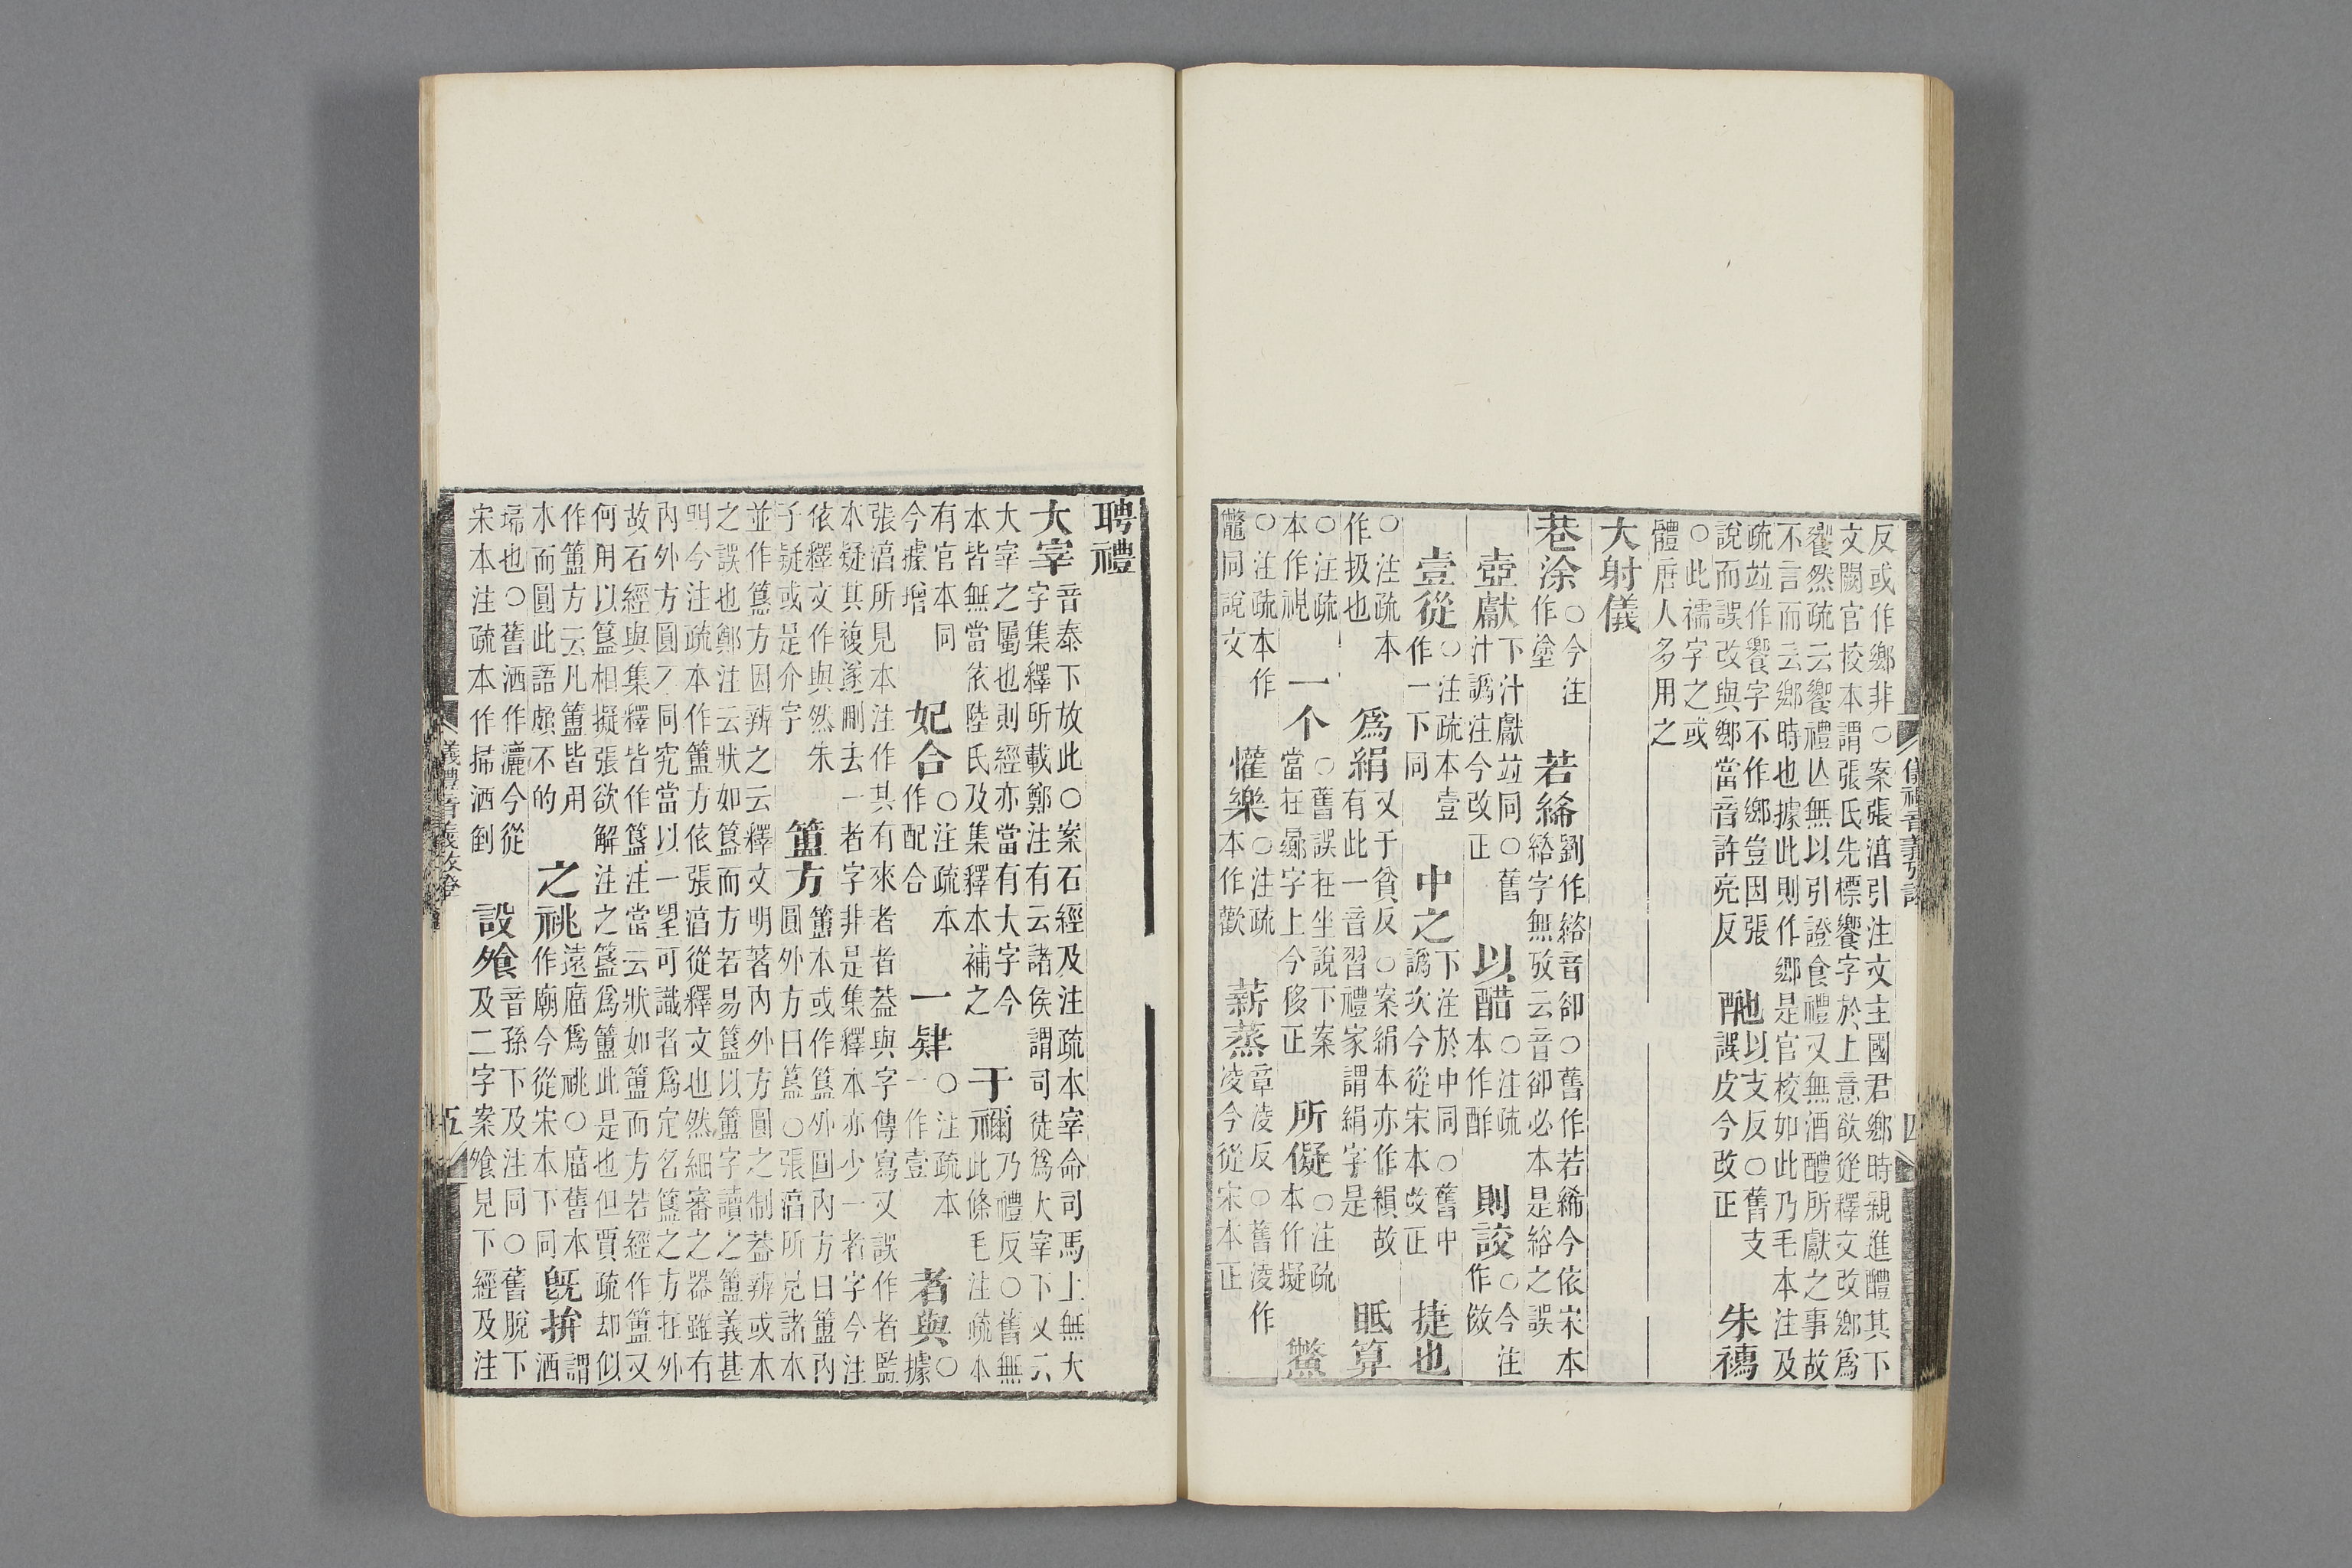 反或作鄉非○案張淳引注文主國君鄉時親進醴其下
文闕官校本謂張氏先標饗字於上意欲從釋文改鄉爲
饗然疏云饗禮亾無以引證食禮又無酒醴所獻之事故
不言而云鄉時也據此則作鄉是官校如此乃毛本注及
疏竝作饗字不作鄉豈因張
說而誤改與鄉當音許亮反
酏以支反○舊支
誤皮今改正
朱襦
○此襦字之或
體唐人多用之
大射儀
巷涂○今注
作塗
若絺劉作綌音卻○舊作若絺今依宋本
綌字無攷云音卻必本是綌之誤
壺獻下汁獻竝同○舊
汁譌注今改正
以醋○注疏
本作酢
則設○今注
作傚
壹從○注疏本壹
作一下同
中之下注於中同○舊中
譌次今從宋本改正
捷也
○注疏本
作扱也
爲絹又于貧反○案絹本亦作縜故
有此一音習禮家謂絹字是
眂算
○注疏
本作視
一个○舊誤在坐說下案
當在曏字上今移正
所儗○注疏
本作擬
鷩
○注疏本作
鼈同說文
懽樂○注疏
本作歡
薪蒸章凌反○舊凌作
凌今從宋本正
儀禮音義攷證
四
聘禮
大宰音泰下放此○案石經及注疏本宰命司馬上無大
字集釋所載鄭注有云諸侯謂司徒爲大宰下又云
大宰之屬也則經亦當有大字今
本皆無當依陸氏及集釋本補之
于禰乃禮反○舊無
此條毛注疏本
有官本同
今據增
妃合○注疏本
作配合
一肄○注疏本
一作壹
者與○
據
張淳所見本注作其有來者者蓋與字傳寫又誤作者監
本疑其複遂刪去一者字非是集釋本亦少一者字今注
依釋文作與然朱
子疑或是介字
簠方簠本或作簋外圓內方曰簠內
圓外方曰簋○張淳所見諸本
並作簋方因辨之云釋文明著內外方圓之制蓋辨或本
之誤也鄭注云狀如簋而方若易簋以簠字讀之簠義甚
明今注疏本作簠方依張淳從釋文也然細審之器雖有
內外方圓不同究當以一望可識者爲定名簋之方在外
故石經與集釋皆作簋注當云狀如簠而方若經作簠又
何用以簋相擬張欲解注之簋爲簠此是也但賈疏却似
作簠方云凡簠皆用
木而圓此語頗不的
之祧遠庿爲祧○庿舊本
作廟今從宋本下同
旣拚謂
洒
埽也○舊洒作灑今從
宋本注疏本作掃洒劉
設飧音孫下及注同○舊脫下
及二字案飧見下經及注
儀禮音義攷證
五